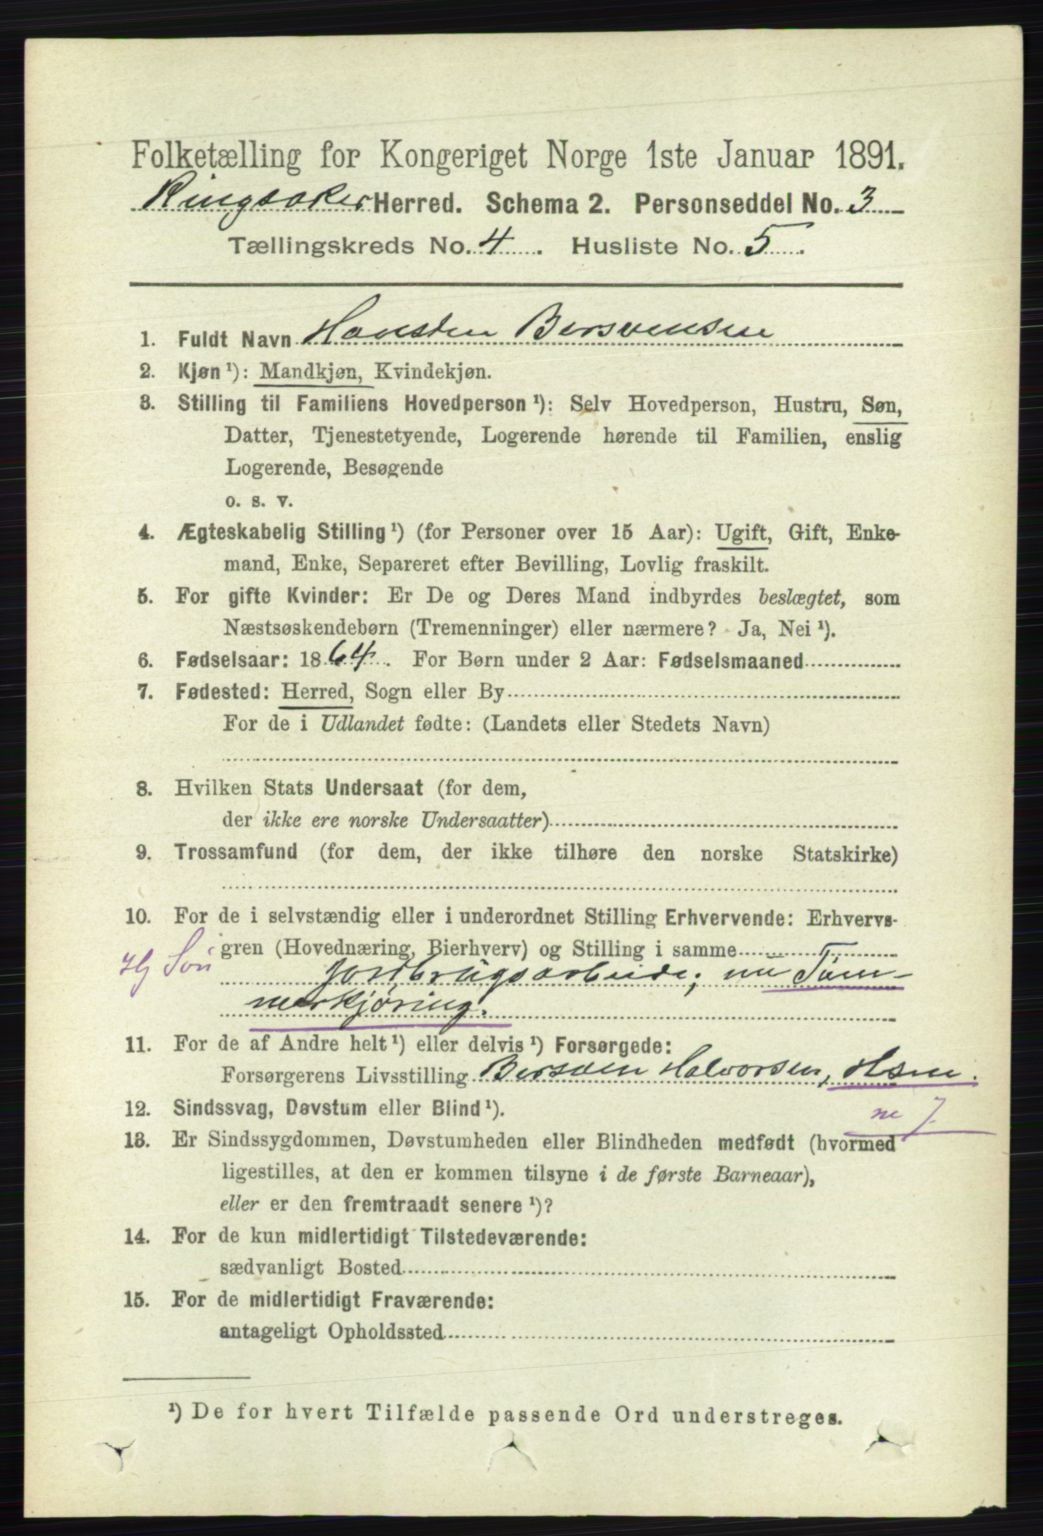 Folketælling for Kongeriget Norge 1ste Januar 1891.
Ringsaker Herred. Schema 2. Personseddel No. 3
Tællingskreds No. 4. Husliste No. 5.
1. Fuldt Navn Haresten Bersvensen
2. Kjøn ¹): Mandkjøn, Kvindekjøn.
3. Stilling til Familiens Hovedperson ¹): Selv Hovedperson, Hustru, Søn,
Datter, Tjenestetyende, Logerende hørende til Familien, enslig
Logerende, Besøgende
o. s. v.
4. Ægteskabelig Stilling ¹) (for Personer over 15 Aar): Ugift, Gift, Enke-
mand, Enke, Separeret efter Bevilling, Lovlig fraskilt.
5. For gifte Kvinder: Er De og Deres Mand indbyrdes beslægtet, som
Næstsøskendebørn (Tremenninger) eller nærmere? Ja, Nei ¹).
6. Fødselsaar: 1864. For Børn under 2 Aar: Fødselsmaaned
7. Fødested: Herred, Sogn eller By
For de i Udlandet fødte: (Landets eller Stedets Navn)
8. Hvilken Stats Undersaat (for dem,
der ikke ere norske Undersaatter)
9. Trossamfund (for dem, der ikke tilhøre den norske Statskirke)
10. For de i selvstændig eller i underordnet Stilling Erhvervende: Erhvervs-
gren (Hovednæring, Bierhverv) og Stilling i samme
Hj Søn Jordbrugsarbeide; nu Tøm-
merkjøring.
11. For de af Andre helt ¹) eller delvis ¹) Forsørgede:
Forsørgerens Livsstilling Bersven Halvorsen, Hsm.
12. Sindssvag, Døvstum eller Blind ¹).
ne 7.
13. Er Sindssygdommen, Døvstumheden eller Blindheden medfødt (hvormed
ligestilles, at den er kommen tilsyne i de første Barneaar),
eller er den fremtraadt senere ¹)?
14. For de kun midlertidigt Tilstedeværende:
sædvanligt Bosted
15. For de midlertidigt Fraværende:
antageligt Opholdssted
¹) De for hvert Tilfælde passende Ord understreges.